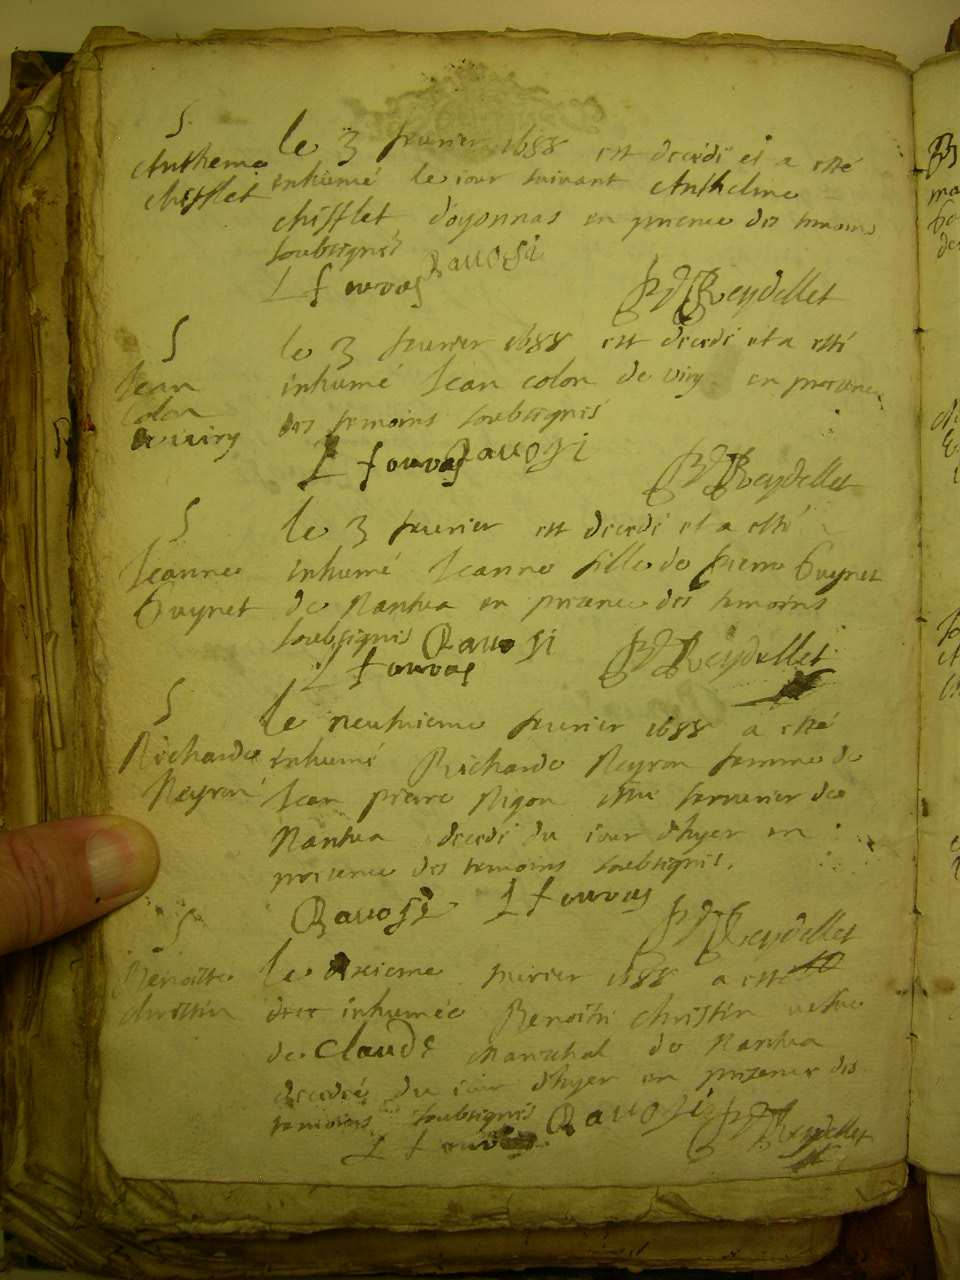 S
Antheme
chifflet
le 3 fevrier 1688 est decedé et a esté
inhumé le iour suivant Anthelme
chifflet d'oyonnas en presence des temoins
soubsignés
Ravosi
L fouvas
Reydellet
S
Jean
colon
de viry
le 3 fevrier 1688 est decedé et a esté
inhumé Jean colon de viry en presence
des temoins soubsignés
L fouvas
Ravosi
Reydellet
S
Jeanne
Guynet
le 3 fevrier est decedé et a esté
inhumé Jeanne fille de pierre Guynet
de Nantua en presence des temoins
soubsignés
Ravosi
L fouvas
Reydellet
S
Richarde
Neyron
le neufvieme fevrier 1688 a esté
inhumé Richarde Neyron femme de
Jean pierre Nigon serrurier de
Nantua decedé du iour d'hyer en
presence des temoins soubsignés.
Ravosi
L fouvas
Reydellet
S
Benoitte
christin
le fevrier 1688 a esté
inhumée Benoite christin vefve
de Claude Marechal de Nantua
decedée du iour d'hyer en presence des
temoins soubsignés
Ravosi
L fouvas
Reydellet